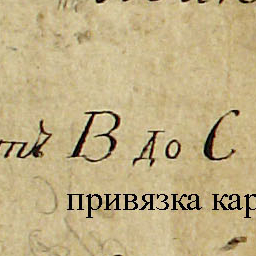 В до С
привязка кар